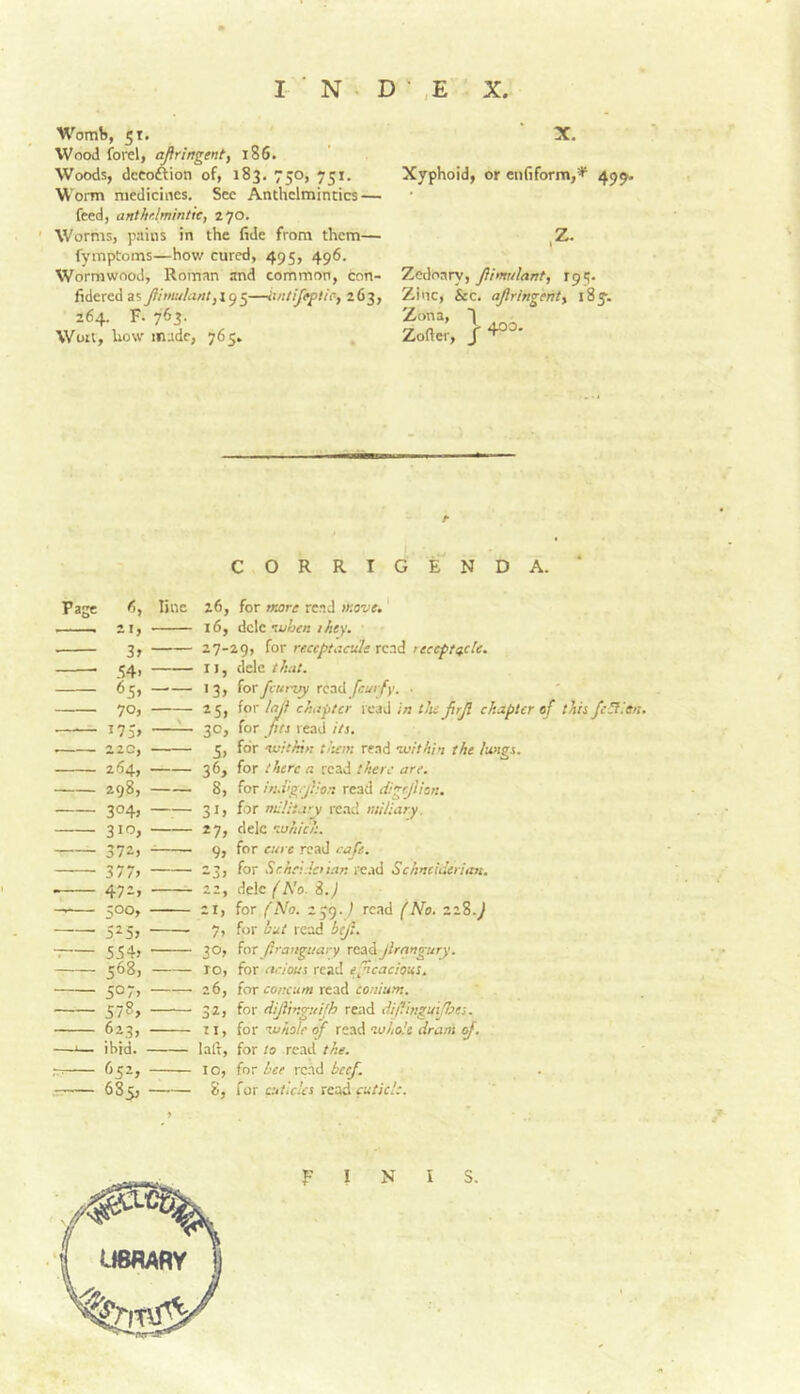 INDEX.
Womb, 51.
Wood ſorel, aſtringent, 186.
Woods, decoction of, 183. 750, 751.
Worm medicines. See Anthelmintics—
ſeed, anthelmintic, 270.
Worms, pains in the ſide from them—
ſymptoms—how cured, 495, 496.
Wormwood, Roman and common, con-
ſidered as ſtimulant, 195—antiſeptic, 263,
264. F. 763.
Wort, how made, 765.
X.
Xyphoid, or enſiform,* 499.
Z.
Zedoary, ſtimulant, 195.
Zinc, &c. aſtringent, 185.
Zona, }
Zoſter, } 400.
CORRIGENDA.
Page 6, line 26, for more read move.
—— 21, —— 16, dele when they.
—— 3, —— 27-29, for receptacule read receptacle.
—— 54, —— 11, dele that.
—— 65, —— 13, for ſcurvy read ſcurfy.
—— 70, —— 25, for laſt chapter read in the firſt chapter of this ſection.
—— 175, —— 30, for fits read its.
—— 220, —— 5, for within them read within the lungs.
—— 264, —— 36, for there a read there are.
—— 298, —— 8, for indigeſtion read digeſtion.
—— 304, —— 31, for military read miliary.
—— 310, —— 27, dele which.
—— 372, —— 9, for cure read caſe.
—— 377, —— 23, for read Schneiderian.
—— 472, —— 22, dele (No. 8.)
—— 500, —— 21, for (No. 259.) read (No. 228.)
—— 525, —— 7, for but read beſt.
—— 554, —— 30, for ſtranguary read ſtrangury.
—— 568, —— 10, for acious read efficacious.
—— 507, —— 26, for concum read conium.
—— 578, —— 32, for diſtinguiſh read diſtinguiſhes.
—— 623, —— 11, for whole of read whole dram of.
—— ibid. —— laſt, for to read the.
—— 652, —— 10, for bee read beef.
—— 685, —— 8, for cuticles read cuticle.
FINIS.
LIBRARY